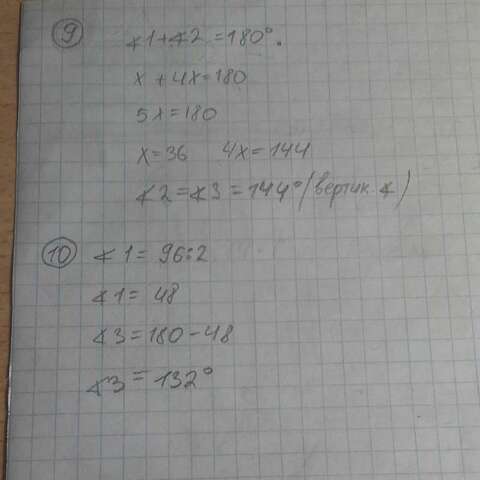 9 ∢1+∢2 =180°.
x + 4x=180
5x=180
x=36 4x=144
∢2=∢3=144°(вертик. ∢)
10 ∢1= 96:2
∢1= 48
∢3=180-48
∢3= 132°